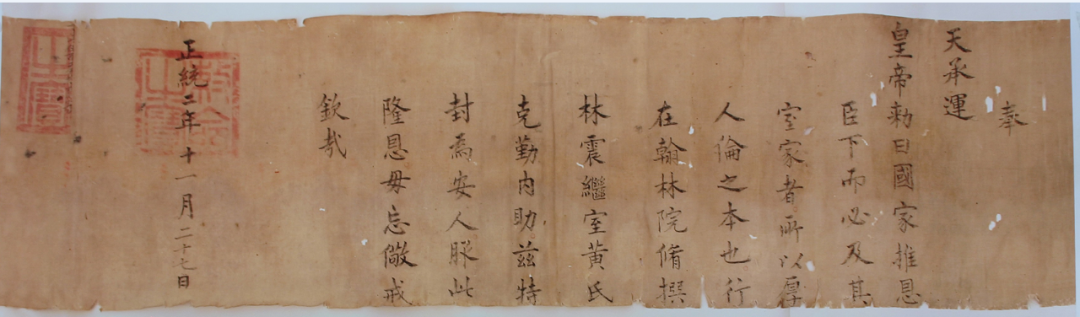 奉
天承運
皇帝勑曰國家推恩
臣下而必及其
室家者所以厚
人倫之本也行
在翰林院脩撰
林震繼室黄氏
克勤内助兹特
封為安人服此
隆恩毋忘儆戒
欽哉
正統二年十一月二十七日